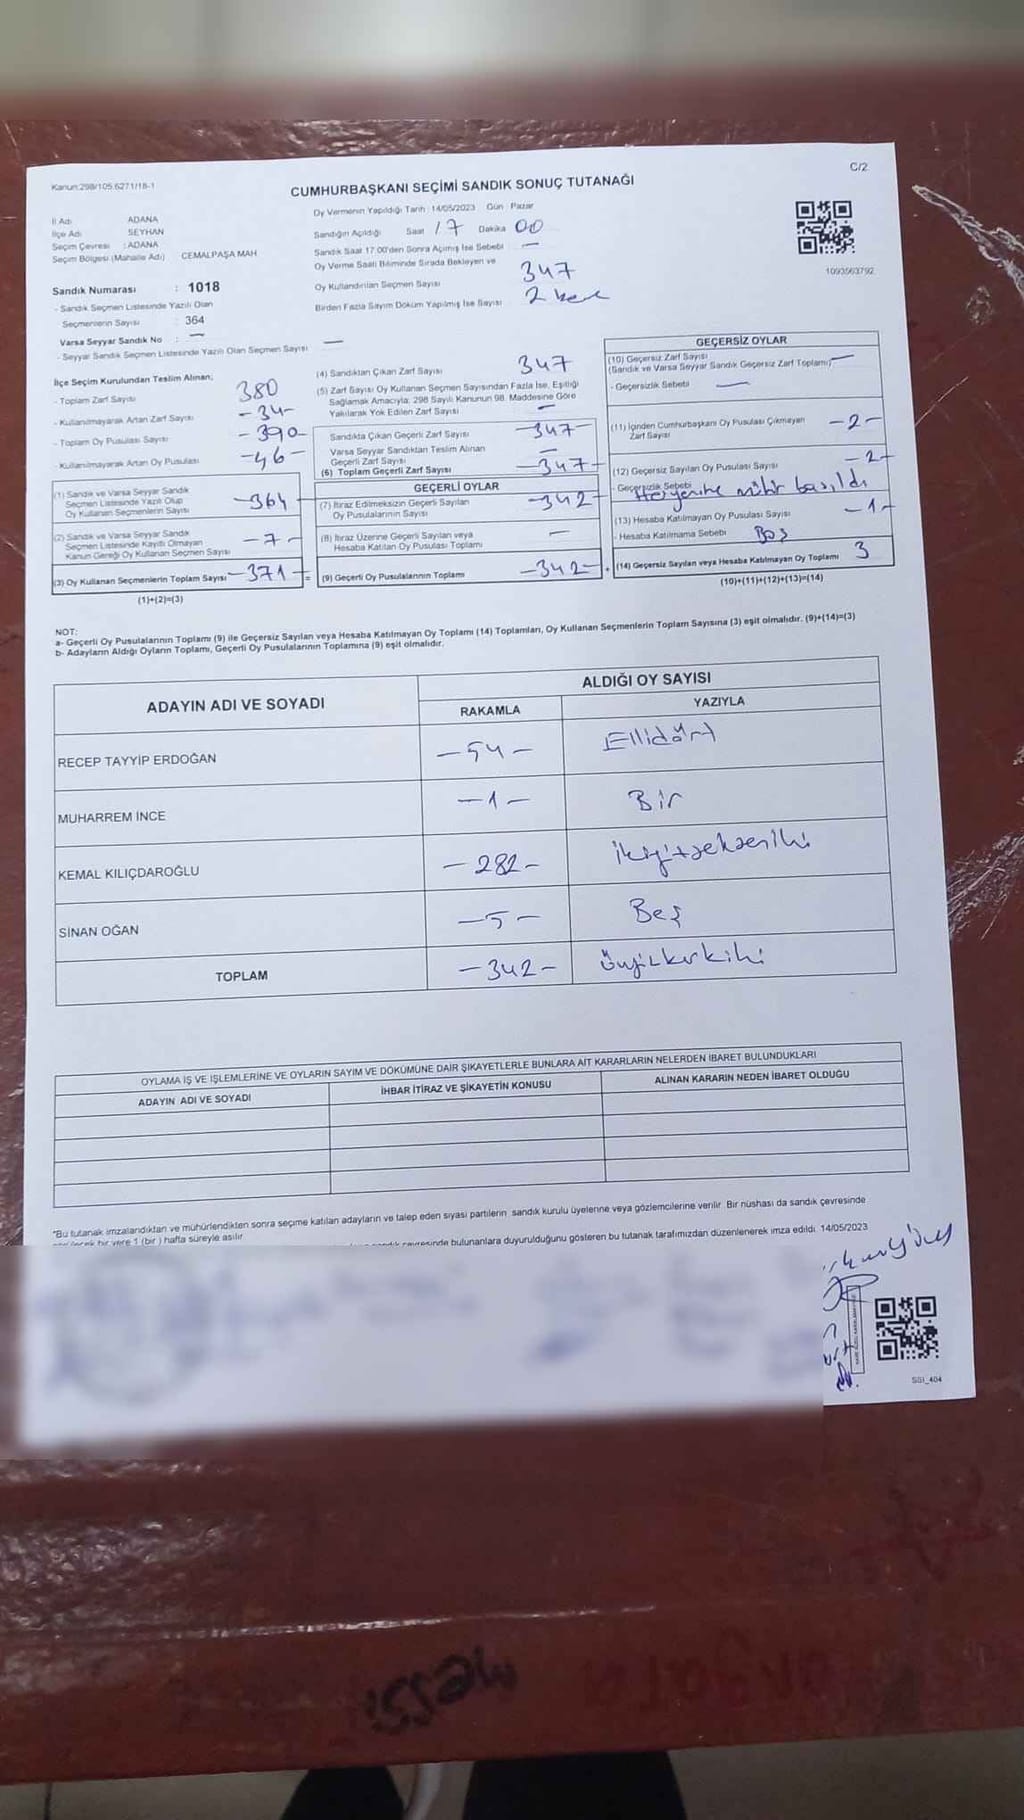 Kanun:298/105.6271/18-1
C/2
CUMHURBAŞKANI SEÇİMİ SANDIK SONUÇ TUTANAĞI
İl Adı : ADANA
İlçe Adı : SEYHAN
Seçim Çevresi : ADANA
Seçim Bölgesi (Mahalle Adı) CEMALPAŞA MAH
Sandık Numarası : 1018
- Sandık Seçmen Listesinde Yazılı Olan
Seçmenlerin Sayısı : 364
Varsa Seyyar Sandık No : —
- Seyyar Sandık Seçmen Listesinde Yazılı Olan Seçmen Sayısı —
Oy Vermenin Yapıldığı Tarih : 14/05/2023 Gün : Pazar
Sandığın Açıldığı Saat 17 Dakika 00
Sandık Saat 17:00'den Sonra Açılmış İse Sebebi —
Oy Verme Saati Bitiminde Sırada Bekleyen ve
Oy Kullandırılan Seçmen Sayısı 347
Birden Fazla Sayım Döküm Yapılmış İse Sayısı 2 kere
1093563792
İlçe Seçim Kurulundan Teslim Alınan;
- Toplam Zarf Sayısı 380
- Kullanılmayarak Artan Zarf Sayısı -34-
- Toplam Oy Pusulası Sayısı -390-
- Kullanılmayarak Artan Oy Pusulası -46-
(1) Sandık ve Varsa Seyyar Sandık
Seçmen Listesinde Yazılı Olup
Oy Kullanan Seçmenlerin Sayısı -364-
(2) Sandık ve Varsa Seyyar Sandık
Seçmen Listesinde Kayıtlı Olmayan
Kanun Gereği Oy Kullanan Seçmen Sayısı -7-
(3) Oy Kullanan Seçmenlerin Toplam Sayısı -371-
(1)+(2)=(3)
(4) Sandıktan Çıkan Zarf Sayısı 347
(5) Zarf Sayısı Oy Kullanan Seçmen Sayısından Fazla İse, Eşitliği
Sağlamak Amacıyla; 298 Sayılı Kanunun 98. Maddesine Göre
Yakılarak Yok Edilen Zarf Sayısı —
Sandıkta Çıkan Geçerli Zarf Sayısı -347-
Varsa Seyyar Sandıktan Teslim Alınan
Geçerli Zarf Sayısı —
(6) Toplam Geçerli Zarf Sayısı -347-
GEÇERLİ OYLAR
(7) İtiraz Edilmeksizin Geçerli Sayılan
Oy Pusulalarının Sayısı -342-
(8) İtiraz Üzerine Geçerli Sayılan veya
Hesaba Katılan Oy Pusulası Toplamı —
(9) Geçerli Oy Pusulalarının Toplamı -342-
GEÇERSİZ OYLAR
(10) Geçersiz Zarf Sayısı
(Sandık ve Varsa Seyyar Sandık Geçersiz Zarf Toplamı) —
- Geçersizlik Sebebi —
(11) İçinden Cumhurbaşkanı Oy Pusulası Çıkmayan
Zarf Sayısı -2-
(12) Geçersiz Sayılan Oy Pusulası Sayısı -2-
- Geçersizlik Sebebi Her yerine mühür basıldı
(13) Hesaba Katılmayan Oy Pusulası Sayısı -1-
- Hesaba Katılmama Sebebi Boş
(14) Geçersiz Sayılan veya Hesaba Katılmayan Oy Toplamı 3
(10)+(11)+(12)+(13)=(14)
NOT:
a- Geçerli Oy Pusulalarının Toplamı (9) ile Geçersiz Sayılan veya Hesaba Katılmayan Oy Toplamı (14) Toplamları, Oy Kullanan Seçmenlerin Toplam Sayısına (3) eşit olmalıdır. (9)+(14)=(3)
b- Adayların Aldığı Oyların Toplamı, Geçerli Oy Pusulalarının Toplamına (9) eşit olmalıdır.
ADAYIN ADI VE SOYADI ALDIĞI OY SAYISI
RAKAMLA YAZIYLA
RECEP TAYYİP ERDOĞAN -54- Ellidört
MUHARREM İNCE -1- Bir
KEMAL KILIÇDAROĞLU -282- ikiyüzsekseniki
SİNAN OĞAN -5- Beş
TOPLAM -342- üçyüzkırkiki
OYLAMA İŞ VE İŞLEMLERİNE VE OYLARIN SAYIM VE DÖKÜMÜNE DAİR ŞİKAYETLERLE BUNLARA AİT KARARLARIN NELERDEN İBARET BULUNDUKLARI
ADAYIN ADI VE SOYADI İHBAR İTİRAZ VE ŞİKAYETİN KONUSU ALINAN KARARIN NEDEN İBARET OLDUĞU
*Bu tutanak imzalandıktan ve mühürlendikten sonra seçime katılan adayların ve talep eden siyasi partilerin sandık kurulu üyelerine veya gözlemcilerine verilir. Bir nüshası da sandık çevresinde
bir yere 1 (bir) hafta süreyle asılır.
sandık çevresinde bulunanlara duyurulduğunu gösteren bu tutanak tarafımızdan düzenlenerek imza edildi. 14/05/2023
SSI_404